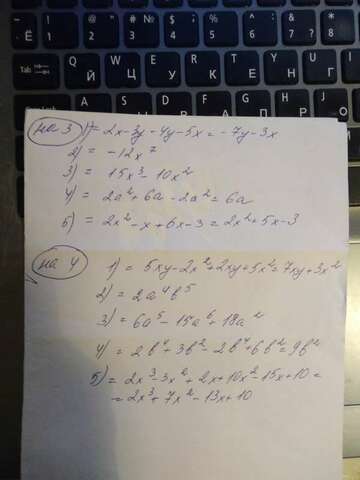 Ё ! 1 @ " 2 # № 3 $ ; 4 % 5 ^ : 6 & ? 7 * 8
Tab Q Й W Ц E У R К T Е Y Н U Г
на 3 1) = 2x-3y-4y-5x = -7y-3x
2) = -12x⁷
3) = 15x³-10x²
4) = 2a²+6a-2a² = 6a
5) = 2x²-x+6x-3 = 2x²+5x-3
на 4 1) = 5xy-2x²+2xy+5x² = 7xy+3x²
2) = 2a⁴b⁵
3) = 6a⁵-15a⁶+18a²
4) = 2b⁴+3b²-2b⁴+6b² = 9b²
5) = 2x³-3x²+2x+10x²-15x+10 =
= 2x³+7x²-13x+10